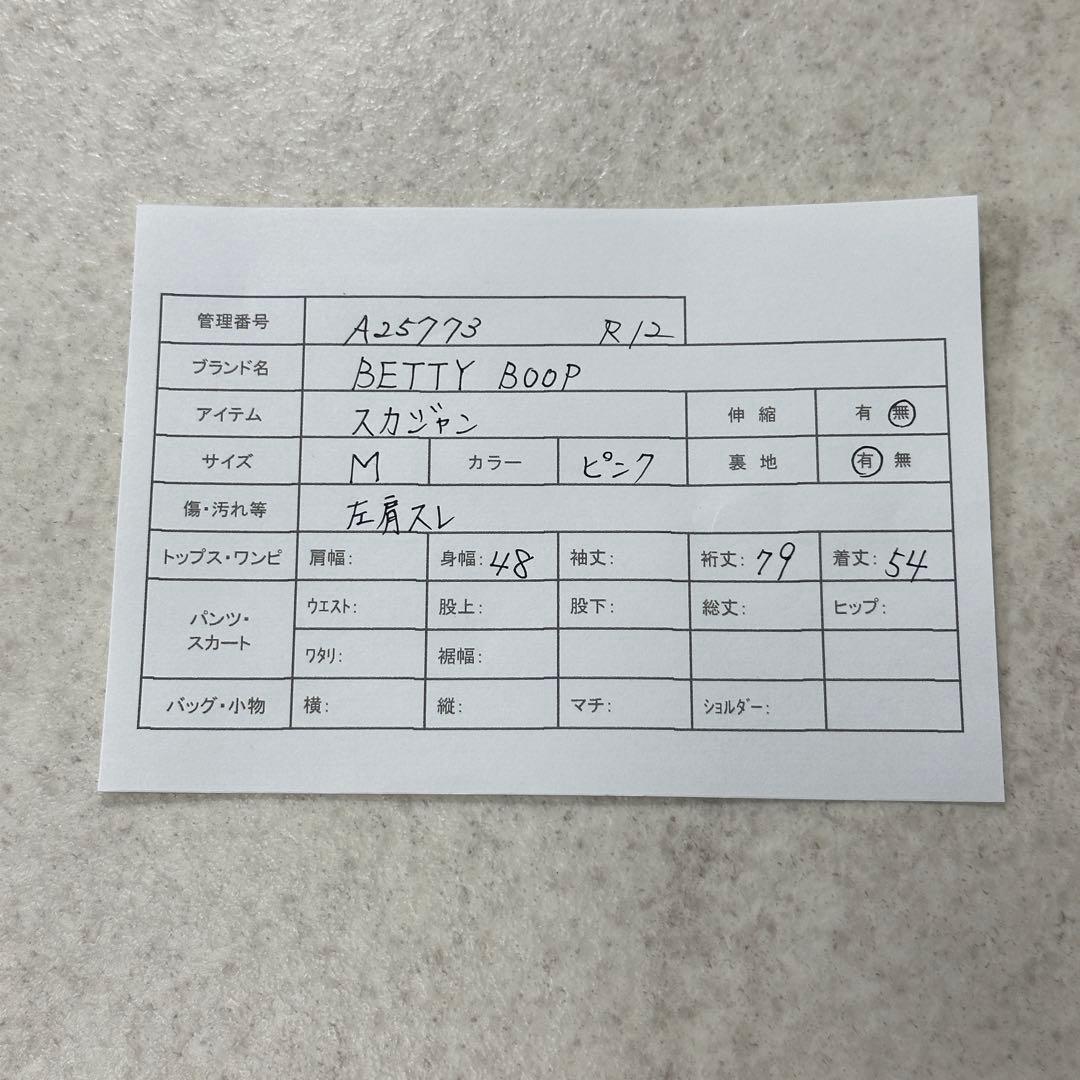 管理番号 A25773 R12
ブランド名 BETTY BOOP
アイテム スカジャン 伸縮 有 無
サイズ M カラー ピンク 裏地 有 無
傷・汚れ等 左肩スレ
トップス・ワンピ 肩幅: 身幅:48 袖丈: 裄丈:79 着丈:54
パンツ・スカート ウエスト: 股上: 股下: 総丈: ヒップ:
ワタリ: 裾幅:
バッグ・小物 横: 縦: マチ: ショルダー: